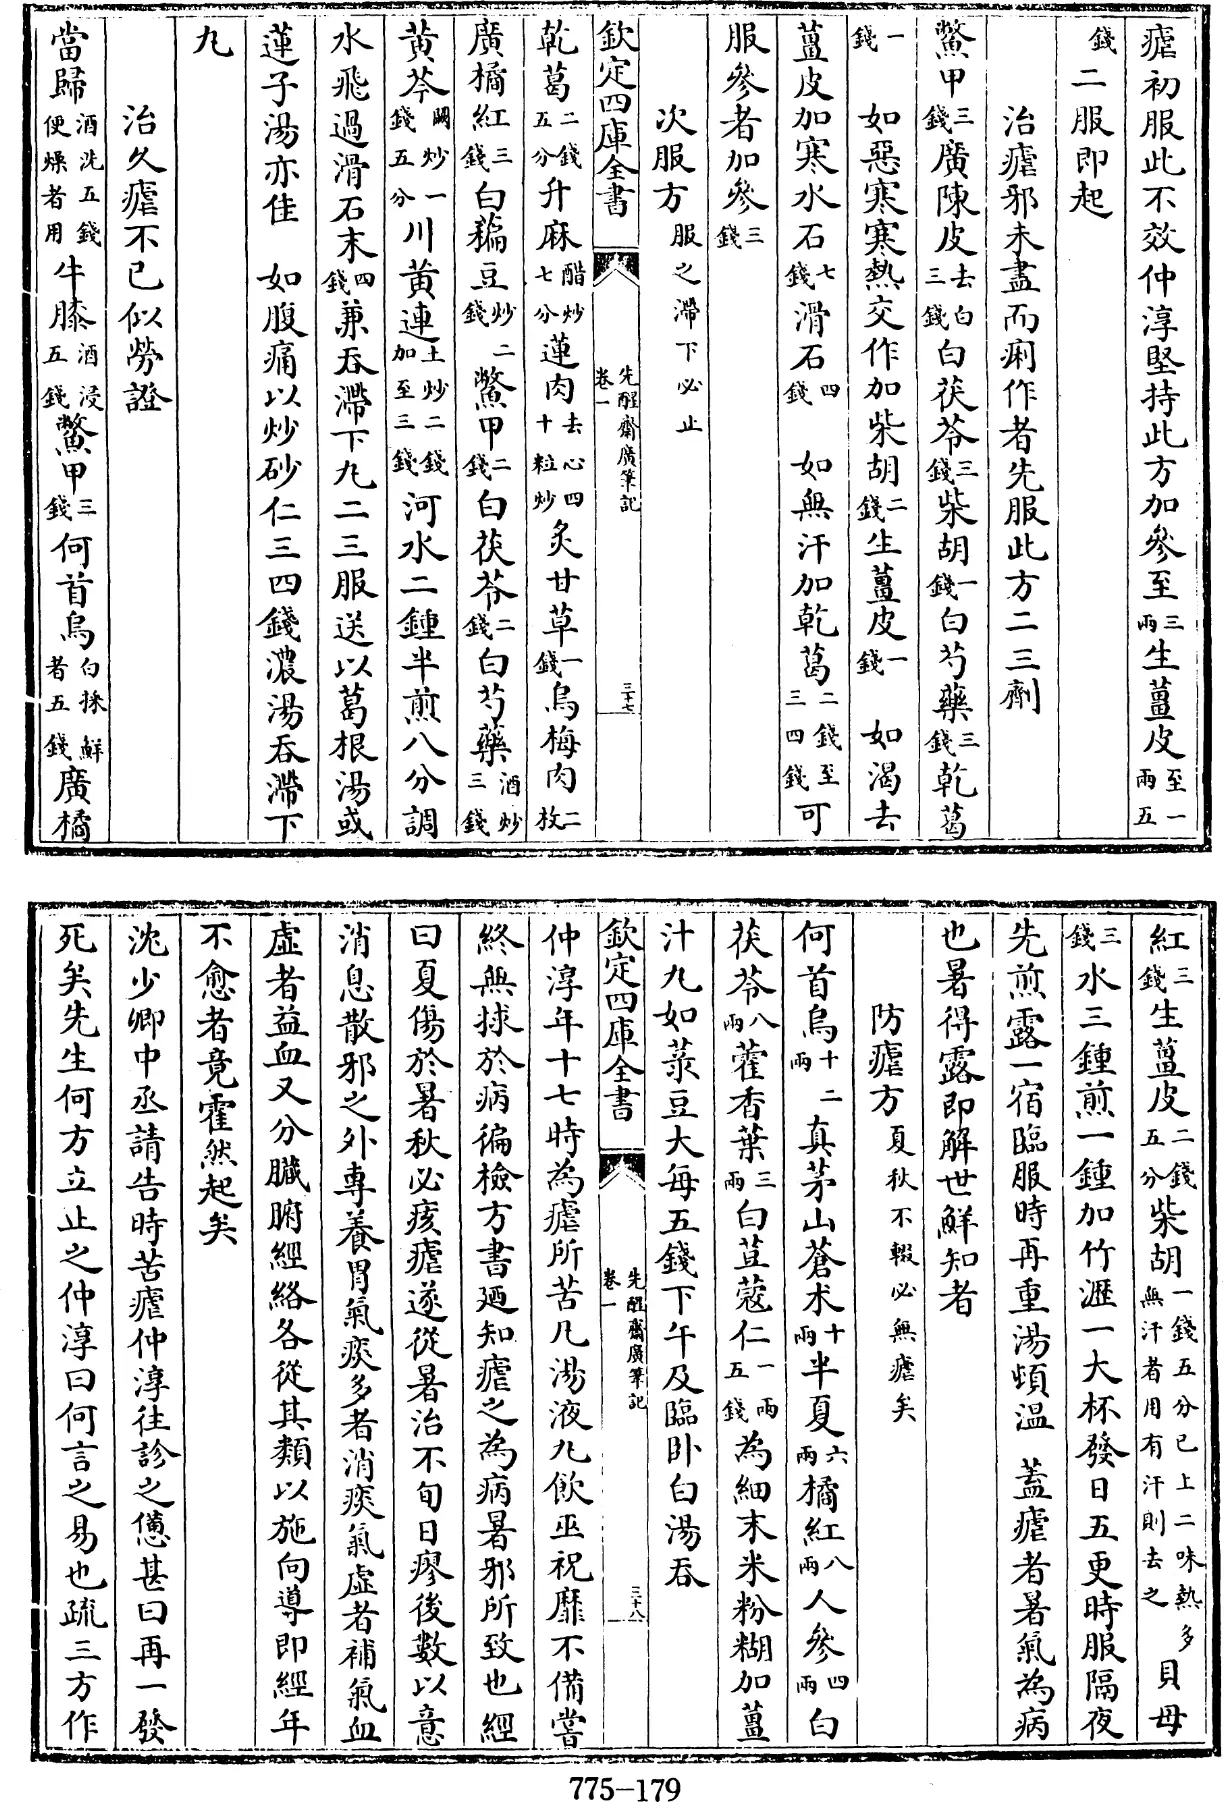 瘧初服此不效仲淳堅持此方加參至三兩生薑皮至一兩五
錢二服即起
治瘧邪未盡而痢作者先服此方二三劑
鱉甲三錢廣陳皮去白三錢白茯苓三錢柴胡一錢白芍藥三錢乾葛
一錢 如惡寒寒熱交作加柴胡二錢生薑皮一錢 如渴去
薑皮加寒水石七錢滑石四錢 如無汗加乾葛二錢至三四錢可
服參者加參三錢
次服方服之滯下必止
欽定四庫全書 先醒齋廣筆記 卷一 三十七
乾葛二錢五分升麻醋炒七分蓮肉去心四十粒炒炙甘草一錢烏梅肉二枚
廣橘紅三錢白藊豆炒二錢鱉甲二錢白茯苓二錢白芍藥酒炒三錢
黃芩炒一錢五分川黃連土炒二錢加至三錢河水二鍾半煎八分調
水飛過滑石末四錢兼吞滯下丸二三服送以葛根湯或
蓮子湯亦佳 如腹痛以炒砂仁三四錢濃湯吞滯下
丸
治久瘧不已似勞證
當歸酒洗五錢便燥者用牛膝酒浸五錢鱉甲三錢何首烏白採鮮者五錢廣橘
紅三錢生薑皮二錢五分柴胡一錢五分已上二味熱多無汗者用有汗則去之貝母
三錢水三鍾煎一鍾加竹瀝一大杯發日五更時服隔夜
先煎露一宿臨服時再重湯頓溫 蓋瘧者暑氣為病
也暑得露即解世鮮知者
防瘧方夏秋不輟必無瘧矣
何首烏十二兩真茅山蒼朮十兩半夏六兩橘紅八兩人參四兩白
茯苓八兩藿香葉三兩白荳蔻仁一兩五錢為細末米粉糊加薑
汁丸如菉豆大每五錢下午及臨卧白湯吞
欽定四庫全書 先醒齋廣筆記 卷一 三十八
仲淳年十七時為瘧所苦凡湯液丸飲巫祝靡不備嘗
終無捄於病徧檢方書廼知瘧之為病暑邪所致也經
曰夏傷於暑秋必痎瘧遂從暑治不旬日瘳後數以意
消息散邪之外專養胃氣痰多者消痰氣虛者補氣血
虛者益血又分臟腑經絡各從其類以施向導即經年
不愈者竟霍然起矣
沈少卿中丞請告時苦瘧仲淳往診之憊甚曰再一發
死矣先生何方立止之仲淳曰何言之易也疏三方作
775-179